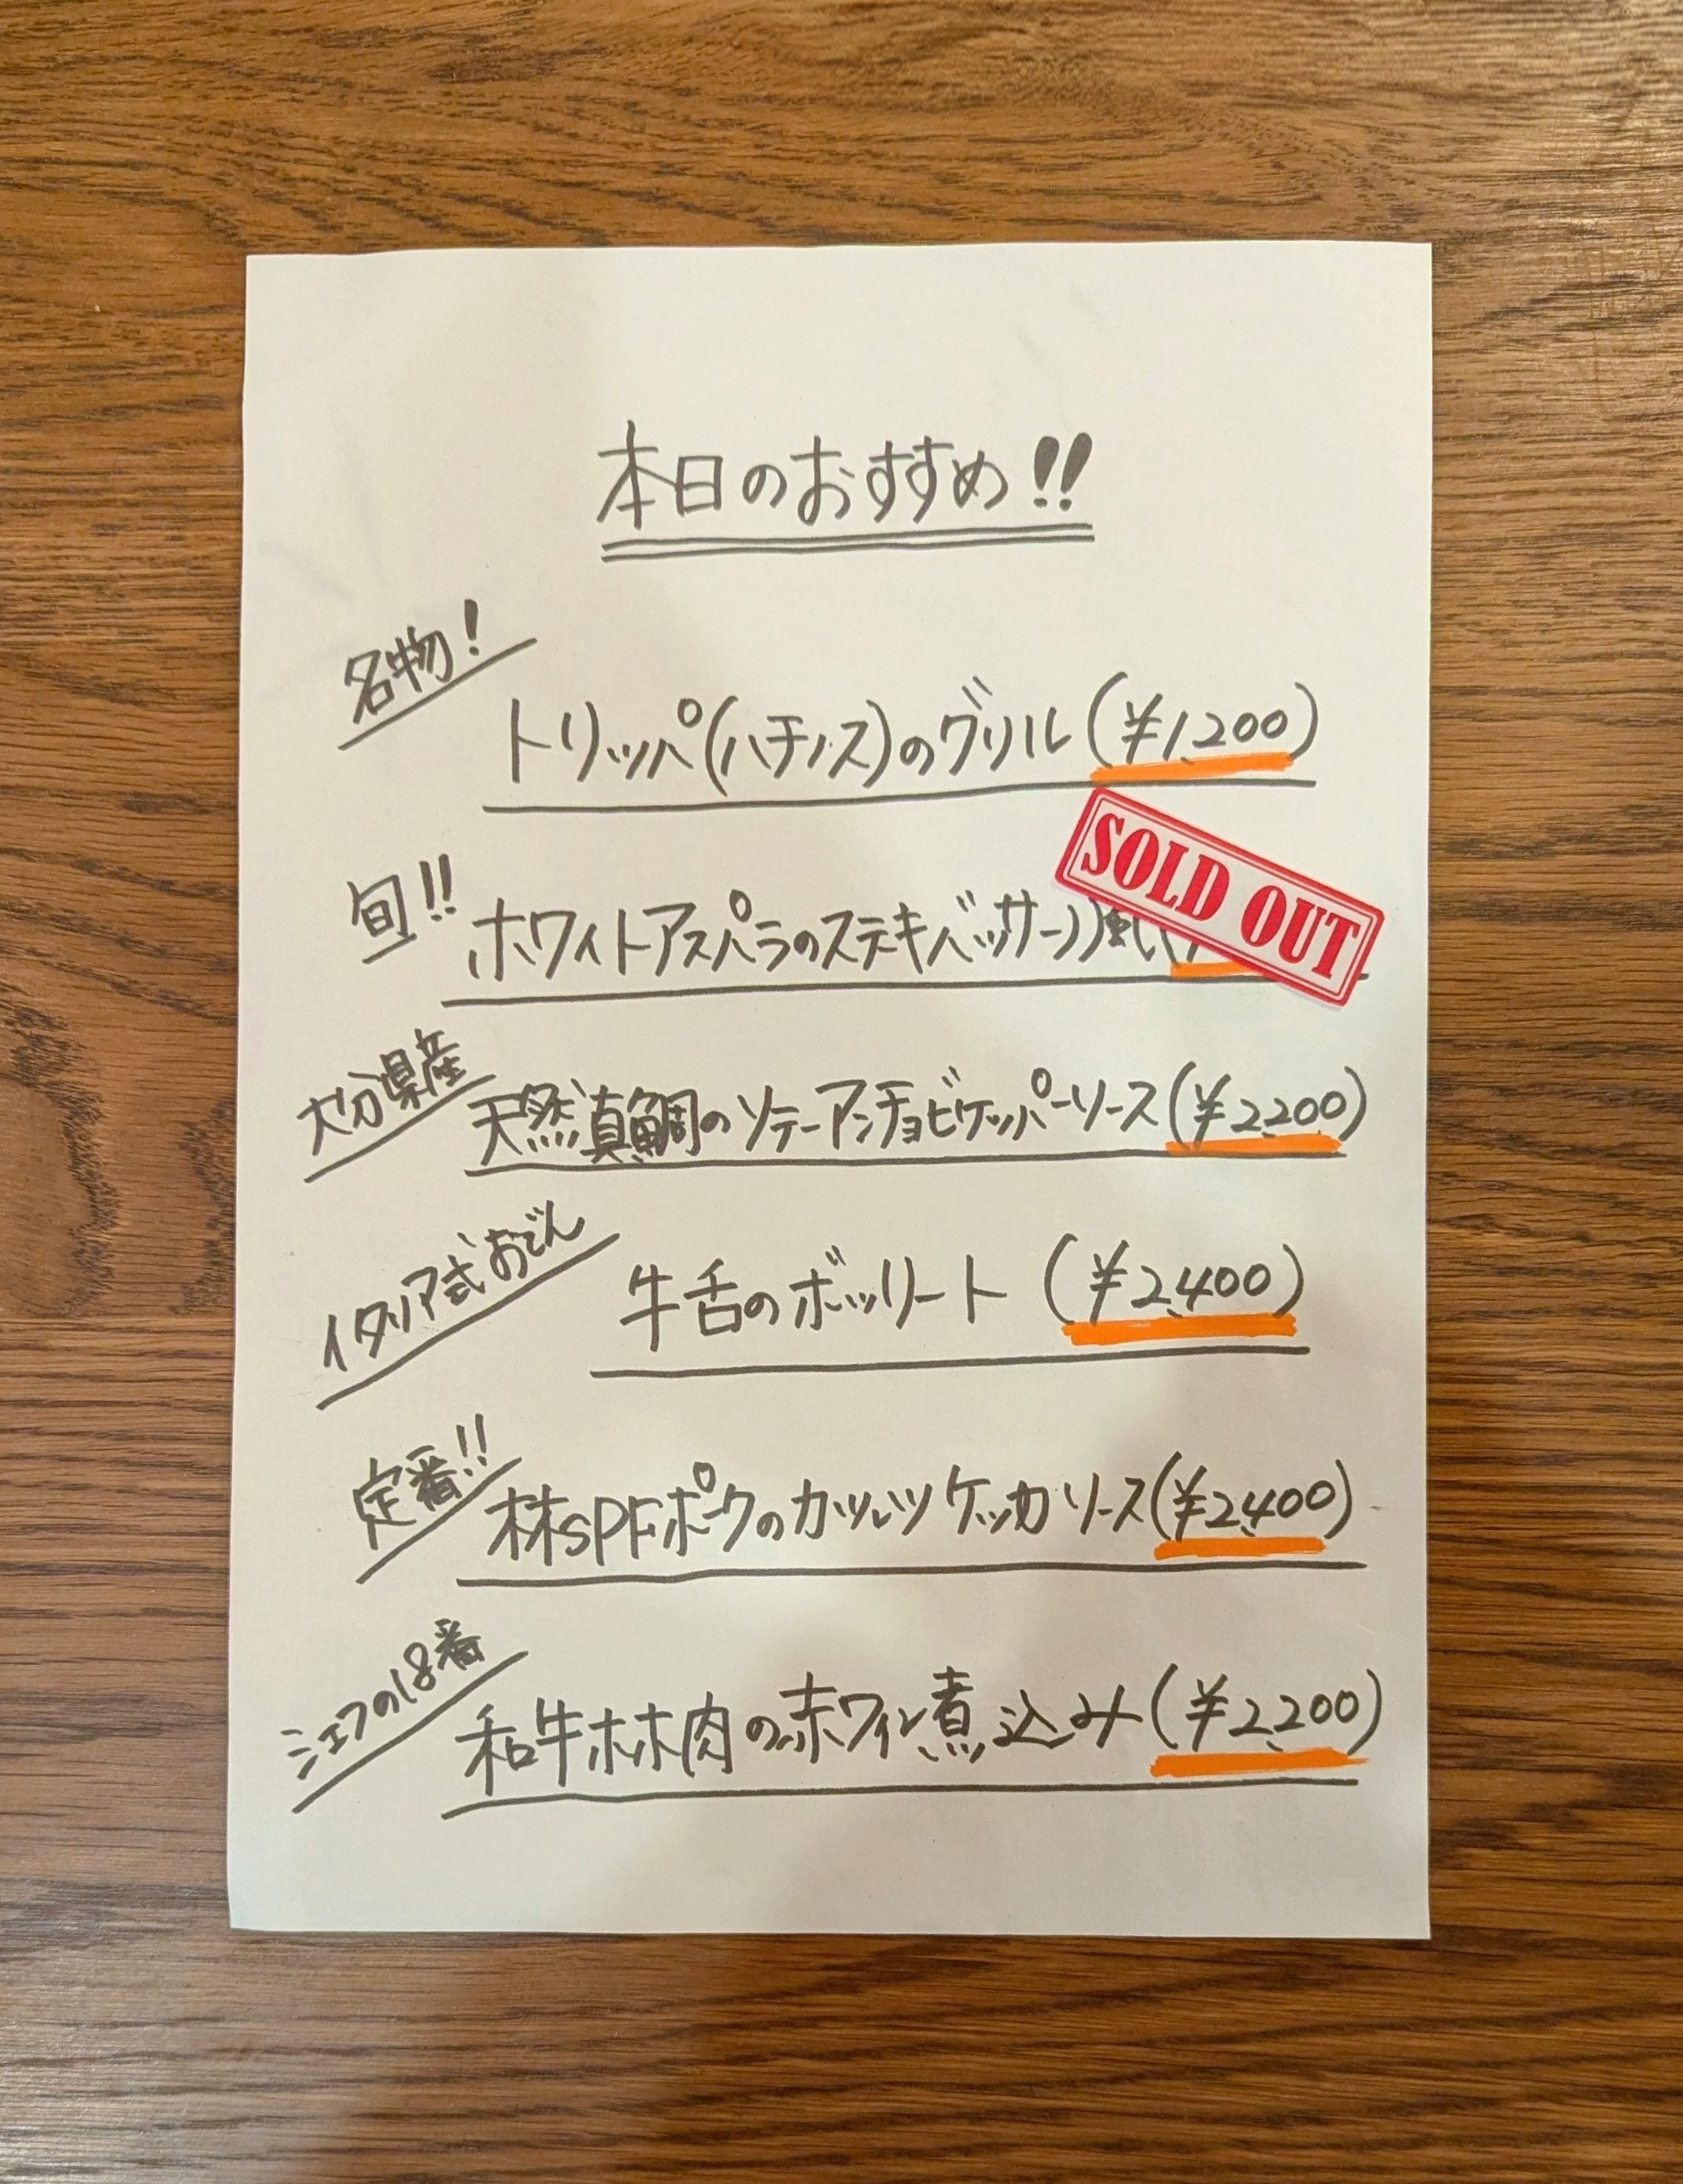 本日のおすすめ!!
名物!
トリッパ(ハチノス)のグリル(¥1,200)
SOLD OUT
旬!!
ホワイトアスパラのステキバッサーノ風(
大分県産
天然真鯛のソテーアンチョビケッパーソース(¥2,200)
イタリア式おでん
牛舌のボッリート(¥2,400)
定番!!
林SPFポークのカツレツケッカソース(¥2,400)
シェフの18番
和牛ホホ肉の赤ワイン煮込み(¥2,200)